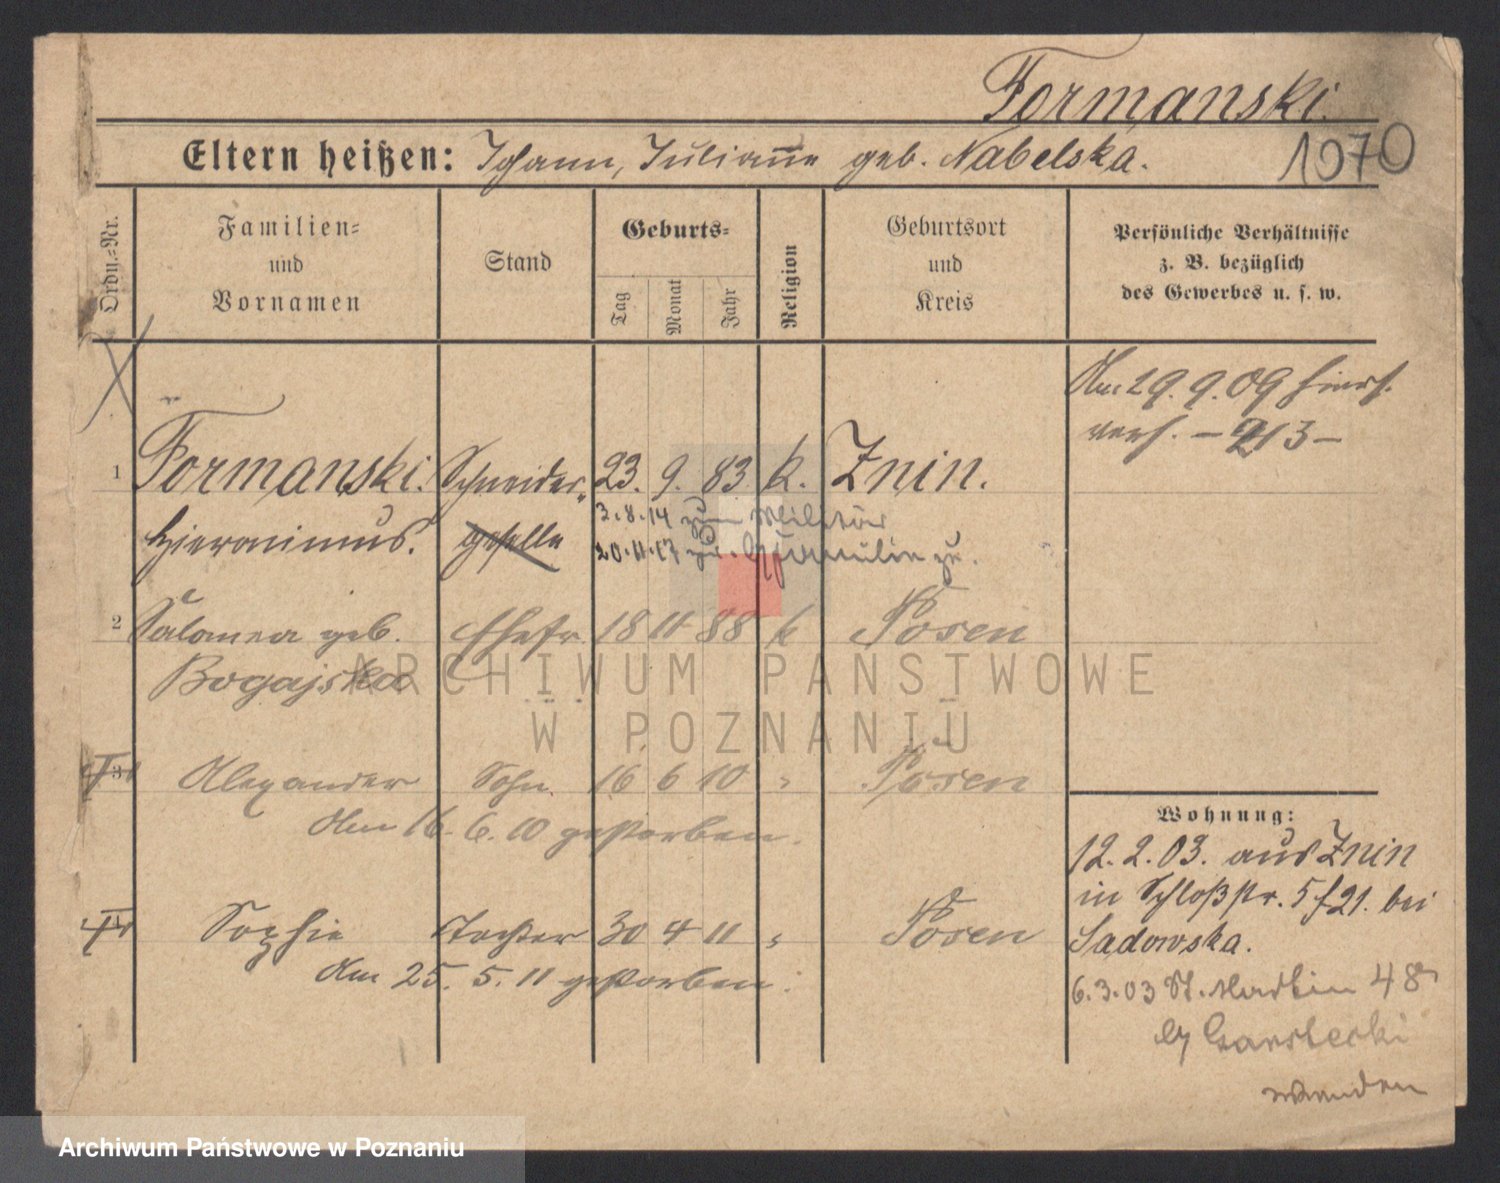 Formanski.
Eltern heißen: Johann, Julianne geb. Nabelska.
1070
Ordn.-Nr.
Familien-
und
Vornamen
Stand
Geburts-
Tag
Monat
Jahr
Religion
Geburtsort
und
Kreis
Persönliche Verhältnisse
z. B. bezüglich
des Gewerbes u. s. w.
Am 29. 9. 09 hiers.
verh. – 213 –
1 Formanski. Schneider- 23. 9. 83. k. Znin.
Hieronimus. geselle
3.8.14 zum Militär
20.11.17 zur Familie zu.
2 Salomea geb. Ehefr. 18 11 88 k Posen
Bogajska
ARCHIWUM PAŃSTWOWE
W POZNANIU
3 Alexander Sohn 16 6 10 " Posen
Am 16. 6. 10 gestorben.
Sophie Tochter 30 4 11 " Posen
Am 25. 5. 11 gestorben.
Wohnung:
12. 2. 03. aus Znin
in Schloßstr. 5 f21. bei
Sadowska.
6.3.03 St. Martin 48
by Garstecki
wenden
Archiwum Państwowe w Poznaniu